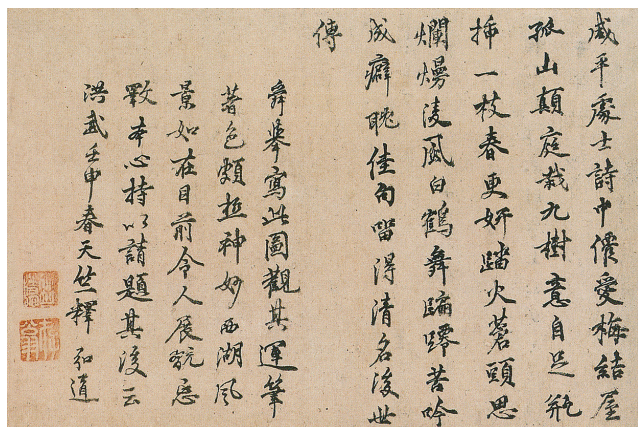 咸平處士詩中僊愛梅結屋
孤山顛庭栽九樹意自足瓶
插一枝春更妍踏火蒼頭思
爛熳淩風白鶴舞蹁躚苦吟
成癖耽佳句留得清名後世
傳
舜舉寫此圖觀其運筆
著色頗極神妙西湖風
景如在目前令人展翫忘
斁本心持以請題其後云
洪武壬申春天竺釋 弘道